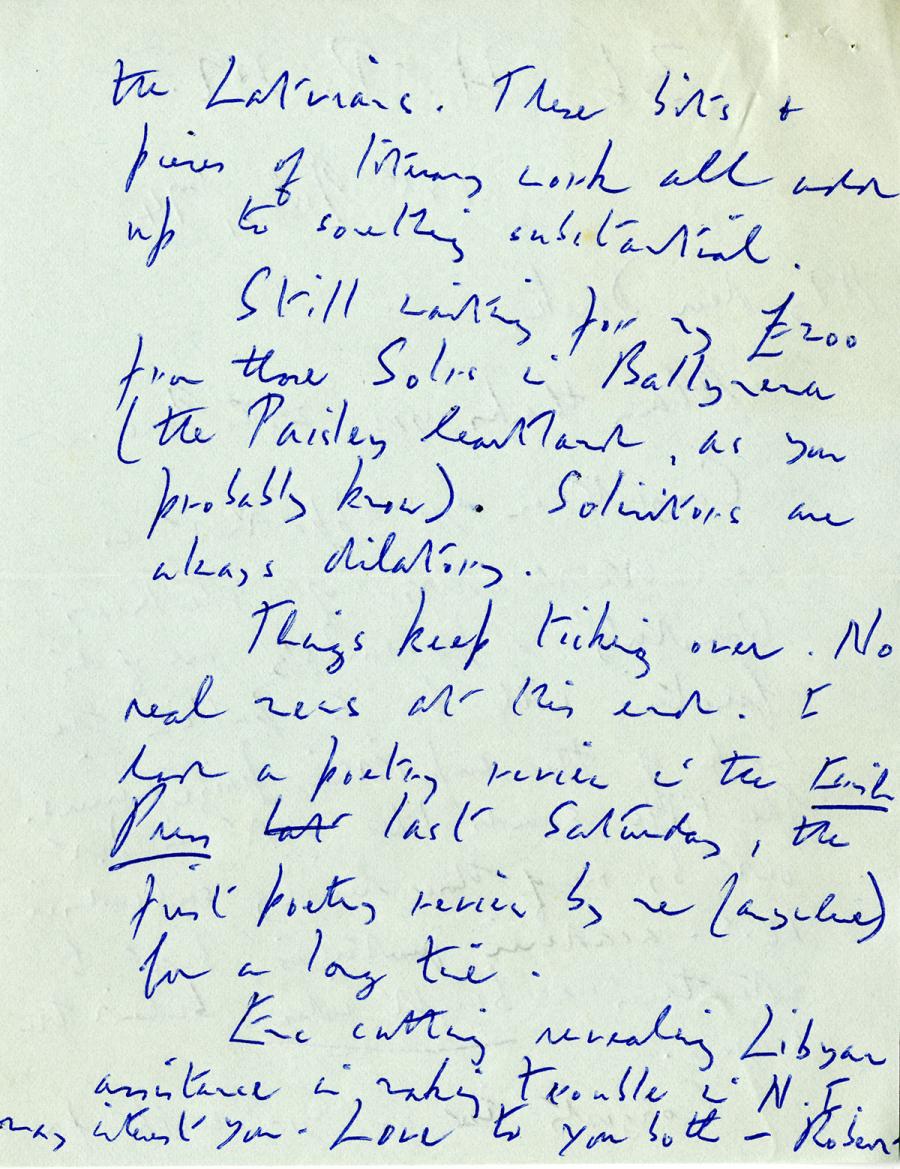 the Latvians. These bits +
pieces of literary work all add
up to something substantial.
Still waiting for my £200
from those Solrs in Ballymena
(the Paisley heartland, as you
probably know). Solicitors are
always dilatory.
Things keep ticking over. No
real news at this end. I
had a poetry review in the Irish
Press last last Saturday, the
first poetry review by me (anywhere)
for a long time.
Enc cutting revealing Libyan
assistance in making trouble in N.I.
may interest you. Love to you both — Robert